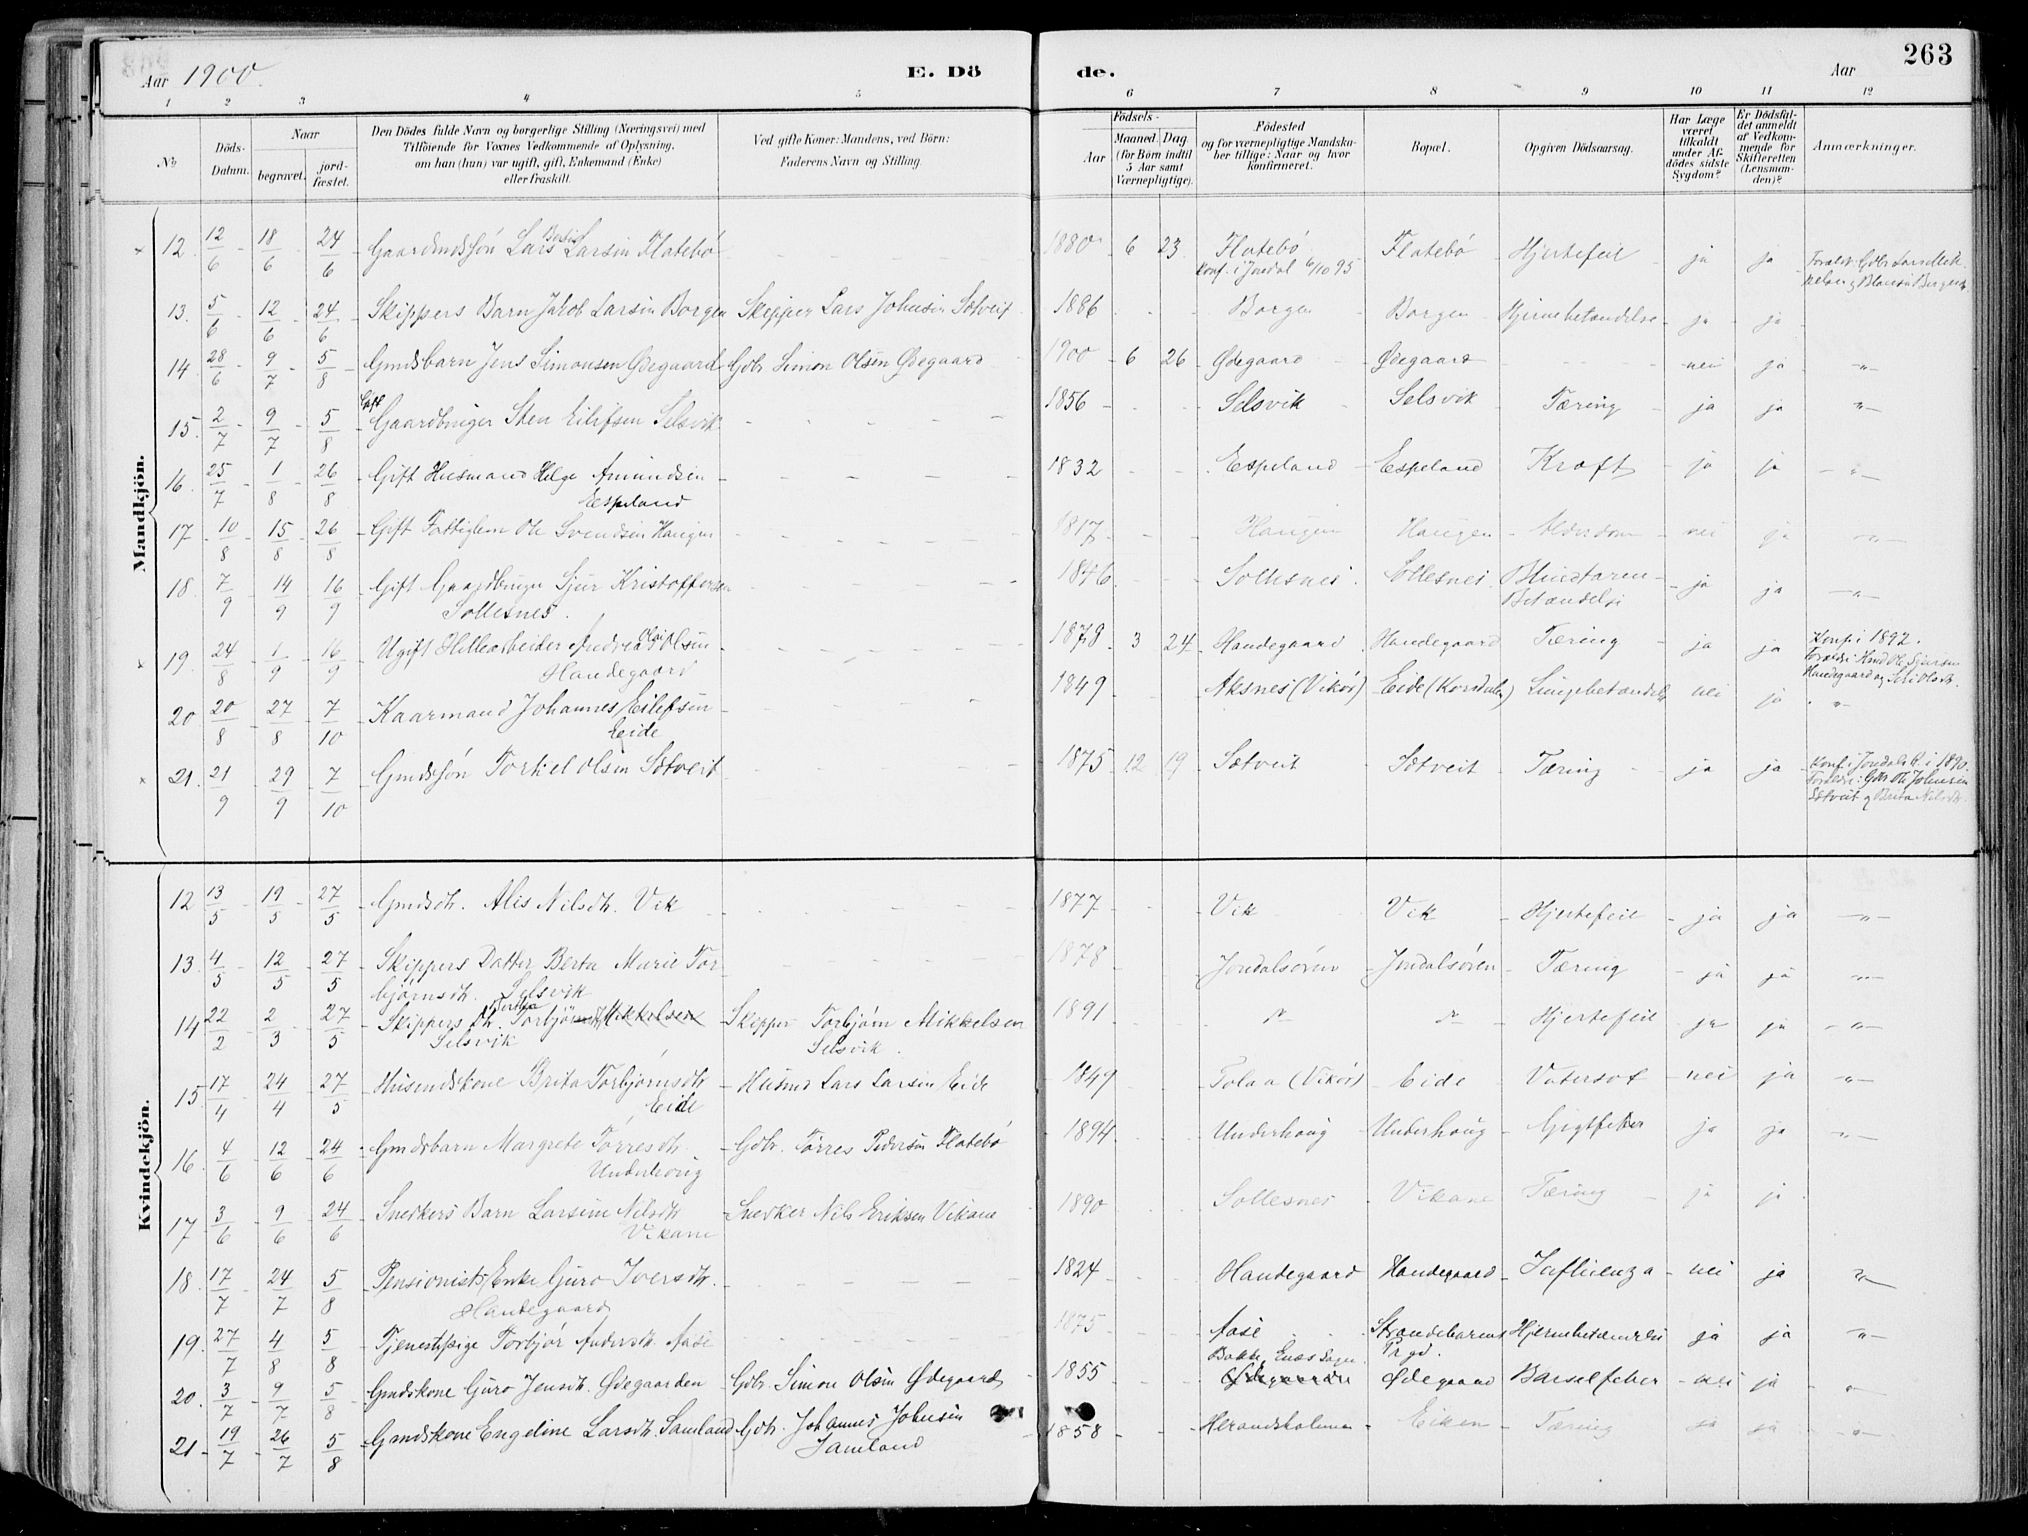 Aar 1900. E. Döde. Aar 263
1 2 3 4 5 6 7 8 9 10 11 12
No Döds-Datum. Naar begravet. jordfæstet. Den Dödes fulde Navn og borgerlige Stilling (Næringsvei) med Tilföiende for Voxnes Vedkommende af Oplysning, om han (hun) var ugift, gift, Enkemand (Enke) eller fraskilt. Ved gifte Koner: Mandens, ved Börn: Faderens Navn og Stilling. Födsels- Aar Maaned. Dag (for Börn indtil 5 Aar samt Værnepligtige). Födested og for værnepligtige Mandskaber tillige: Naar og hvor konfirmeret. Bopæl. Opgiven Dödsaarsag. Har Læge været tilkaldt under Afdödes sidste Sygdom? Er Dödsfaldet anmeldt af Vedkommende for Skifteretten (Lensmanden)? Anmærkninger.
Mandkjön.
12 12/6 18/6 24/6 Gaardmdssøn Lars Larsen Flatebø 1880 6 23 Flatebø Flatebø Hjertefeil ja ja
Konf. i Jondal 6/10 95
13. 5/6 12/6 24/6 Skippers Barn Jakob Larsen Borgen Skipper Lars Johnsen Sætveit 1886 Borgen Borgen Hjernebetændelse ja ja
14. 28/6 9/7 5/8 Gmdsbarn Jens Simonsen Ødegaard Gdbr. Simon Olsen Ødegaard 1900 6 26 Ødegaard Ødegaard nei ja "
15. 2/7 9/7 5/8 Gift Gaardbruger Sten Eilifsen Selsvik 1856 Selsvik Selsvik Tæring ja ja "
16. 25/7 1/8 26/8 Gift Husmand Helge Amundsen 1832 Espeland Espeland Kræft ja ja "
Espeland
17 10/8 15/8 26/8 Gift Fattiglem Ole Svendsen Haugen 1817 Haugen Haugen Alderdom nei ja "
18. 7/9 14/9 16/9 Gift Gaardbruger Sjur Kristoffersen 1846 Sollesnes Sollesnes Blindtarm- ja ja "
Sollesnes. Betændelse
19. 24/8 1/9 16/9 Ugift Andreas Olai Olsen 1878 3 24 Handegaard Handegaard Tæring ja ja Konf. i 1892.
Handegaard
20 20/8 27/8 7/10 Kaarmand Johannes Eilefsen 1849 Aksnes (Vikør) Eide (Korsdalen) Lungebetændelse nei ja "
Eide
21. 21/9 29/9 7/10 Gmdssøn Torkel Olsen Sætveit 1875 12 19 Sætveit Sætveit Tæring ja ja Konf. i Jondals K. i 1890.
Forældre: Gbr. Ole Johnsen
Sætveit og Brita Nilsdtr.
Kvindekjön.
12 13/5 19/5 27/5 Gmdsdtr. Alis Nilsdtr. Vik 1877 Vik Vik Hjertefeil ja ja "
13. 4/5 12/5 27/5 Skippers Datter Berta Marie Tor- 1878 Jondalsøren Jondalsøren Tæring ja ja "
bjørnsdtr. Selsvik
14 22/2 2/3 27/5 Skippers dtr. Torbjørnsdtr. Mikkelsen Skipper Torbjørn Mikkelsen 1891 " " Hjertefeil ja ja "
Selsvik Selsvik.
15. 17/4 24/4 27/5 Husmdskone Brita Torbjørnsdtr. Husmd Lars Larsen Eide 1849 Tolaa (Vikør) Eide Vatersot nei ja "
Eide
16 4/6 12/6 24/6 Gmdsbarn Margrete Torresdtr. Gdbr. Tørres Pedersen Flatebø 1894 Underhaug Underhaug Gigtfeber ja ja "
Underhaug
17 3/6 9/6 24/6 Snedkers Barn Larsine Nilsdtr. Snedker Nils Eriksen Vikane 1890 Sollesnes Vikane Tæring ja ja
Vikane
18. 17/7 24/7 5/8 Pensionist, Enke Guro Iversdtr. 1824 Handegaard Handegaard Influenza nei ja "
Handegaard
19. 27/7 4/8 5/8 Tjenestpige Torbjør Andersdtr. Aase 1875 Aase Strandebarms Hjernebetændelse ja ja "
Prgd.
Bakke, Enæs Sogn.
20. 3/7 9/7 5/8 Gmdskone Guro Jensdtr. Ødegaarden Gdbr. Simon Olsen Ødegaard 1855 Ødegaarden Ødegaard Barselfeber nei ja "
21 19/7 26/7 5/8 Gmdskone Engeline Larsdtr. Samland Gdbr. Johannes Johnsen 1858 Herandsholmen Eiken Tæring ja ja "
Samland